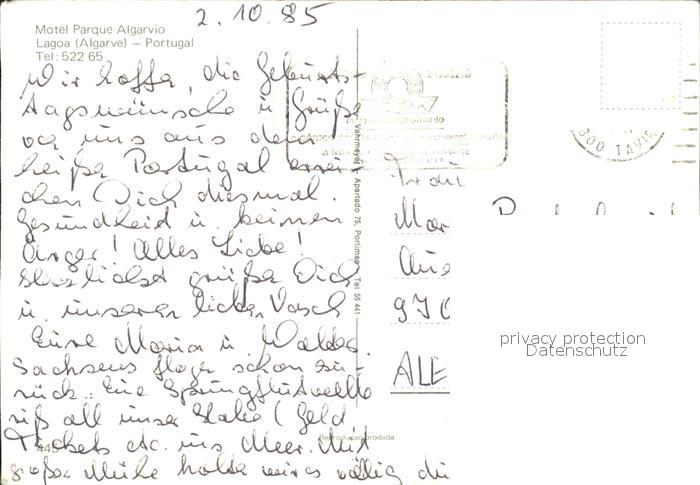 2.10.85
Motel Parque Algarvio
Lagoa (Algarve) – Portugal
Tel: 522 65
Wir hoffen, die Geburts-
tagswünsche u Grüße
von uns aus dem
heißen Portugal errei-
chen Dich diesmal.
Gesundheit u. keinen
Ärger! Alles Liebe!
Herzlichst grüßen Dich
u. unseren lieben
Eure Maria u.
Sachsens flogen schon zu-
rück. Eine Springflutwelle
riß all unsere Habe (Geld
Tickets etc. ins Meer. Mit
großer Mühe holten wir es völlig du
445
Reprodução proibida
Apartado 75, Portimao Tel 55 441
300 TAVIR
Mar
Aue
ALE
privacy protection
Datenschutz